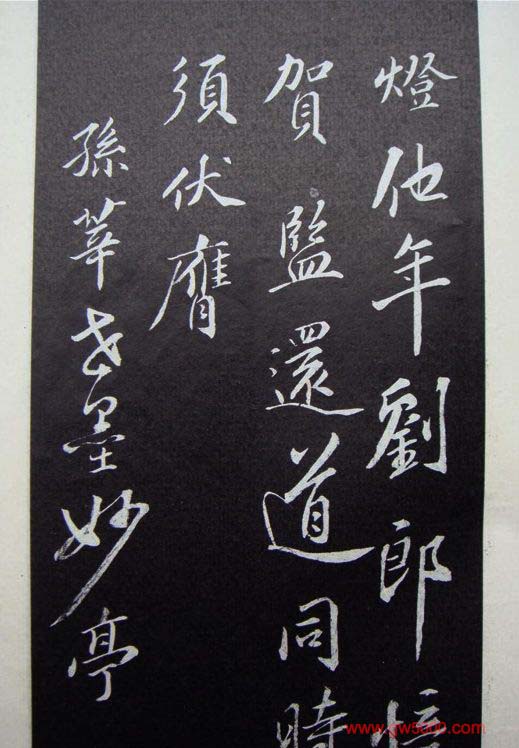 燈他年劉郎
賀監還道同時
須伏膺
孫莘老墨妙亭